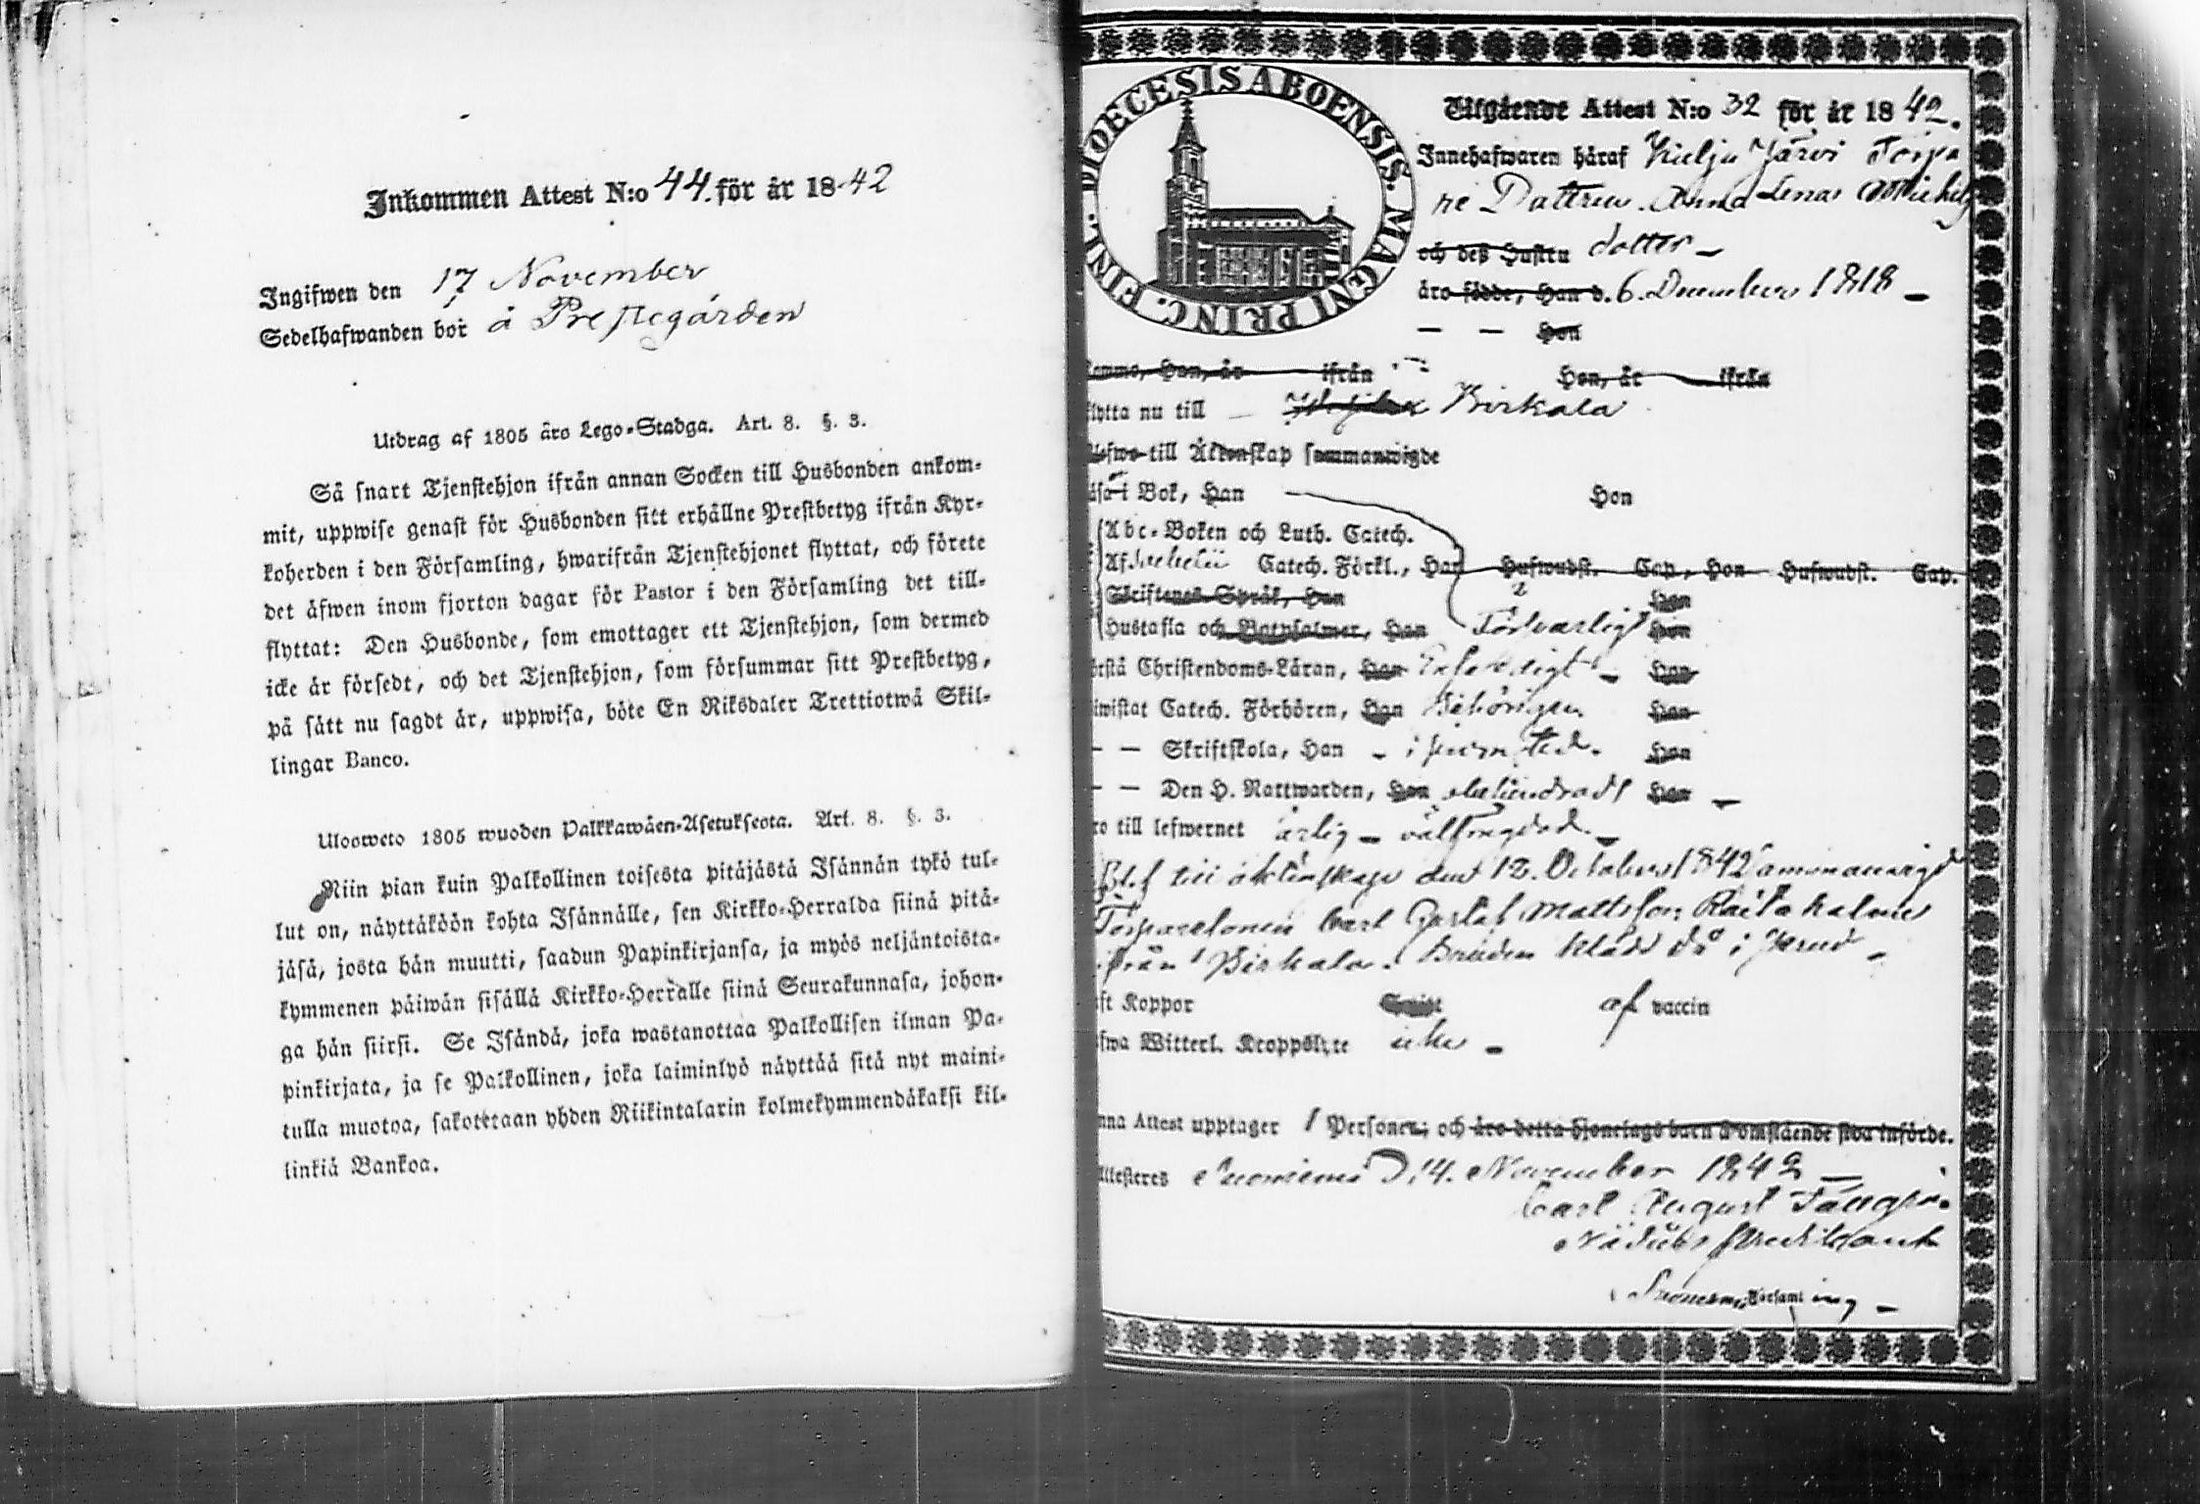 Inkommen Attest N:o 44. för år 18-42
Ingifwen den 17 November
Sedelhafwanden bor å Prestegården
Utdrag af 1805 års Lego-Stadga. Art. 8. §. 3.
Så snart Tjenstehjon ifrån annan Socken till Husbonden ankom-
mit, uppwise genast för Husbonden sitt erhållne Prestbetyg ifrån Kyr-
koherden i den Församling, hwarifrån Tjenstehjonet flyttat, och förete
det äfwen inom fjorton dagar för Pastor i den Församling det till-
flyttat: Den Husbonde, som emottager ett Tjenstehjon, som dermed
icke är försedt, och det Tjenstehjon, som försummar sitt Prestbetyg,
på sätt nu sagdt är, uppwisa, böte En Riksdaler Trettiotwå Skil-
lingar Banco.
Uloosweto 1805 wuoden Palkkawäen-Asetuksesta. Art. 8. §. 3.
Niin pian kuin Palkollinen toisesta pitäjästä Isännän tykö tul-
lut on, näyttäköön kohta Isännälle, sen Kirkko-Herralda siinä pitä-
jäsä, josta hän muutti, saadun Papinkirjansa, ja myös neljäntoista-
kymmenen päiwän sisällä Kirkko-Herralle siinä Seurakunnasa, johon-
ga hän siirsi. Se Isändä, joka wastanottaa Palkollisen ilman Pa-
pinkirjata, ja se Palkollinen, joka laiminlyö näyttää sitä nyt maini-
tulla muotoa, sakotetaan yhden Riikintalarin kolmekymmendäkaksi kil-
linkiä Bankoa.
DIOECESIS ABOENSIS. MAGNI PRINC. FINL.
Utgående Attest N:o 32 för år 1842.
Innehafwaren häraf Järvi Torpa
re Dottren Anna Lena Michels
och deß Hustru dotter -
äro födde, Han d. 6. December 1818 -
- - Hon
Han, år ifrån Hon, år ifrån
flytta nu till Birkala
till Äktenskap sammanwigde
i Bok, Han Hon
Abc-Boken och Luth. Catech.
Af Catech. Förkl., Han Hufwudst. Cap., Hon Hufwudst. Cap.
Skriftenes Språk, Han Hon
Hustafla och Botpsalmer, Han Försvarligt Hon
Christendoms-Läran, Han Hon
Catech. Förhören, Han Behörigen Hon
- - Skriftskola, Han Hon
- - Den H. Nattwarden, Han Hon
till lefwernet ärlig - välfrägdad -
till äktenskap den 12. October 1842 sammanvigd
Carl Gustaf Mattsson
ifrån Birkala. Bruden klädd då i
Koppor af vaccin
Witterl. Kroppslyte icke -
Attest upptager 1 Personer; och äro detta hjonelags barn å omstående sida införde.
Attesteres Suoniemi d. 14. November 1842 -
Carl August
Predikant